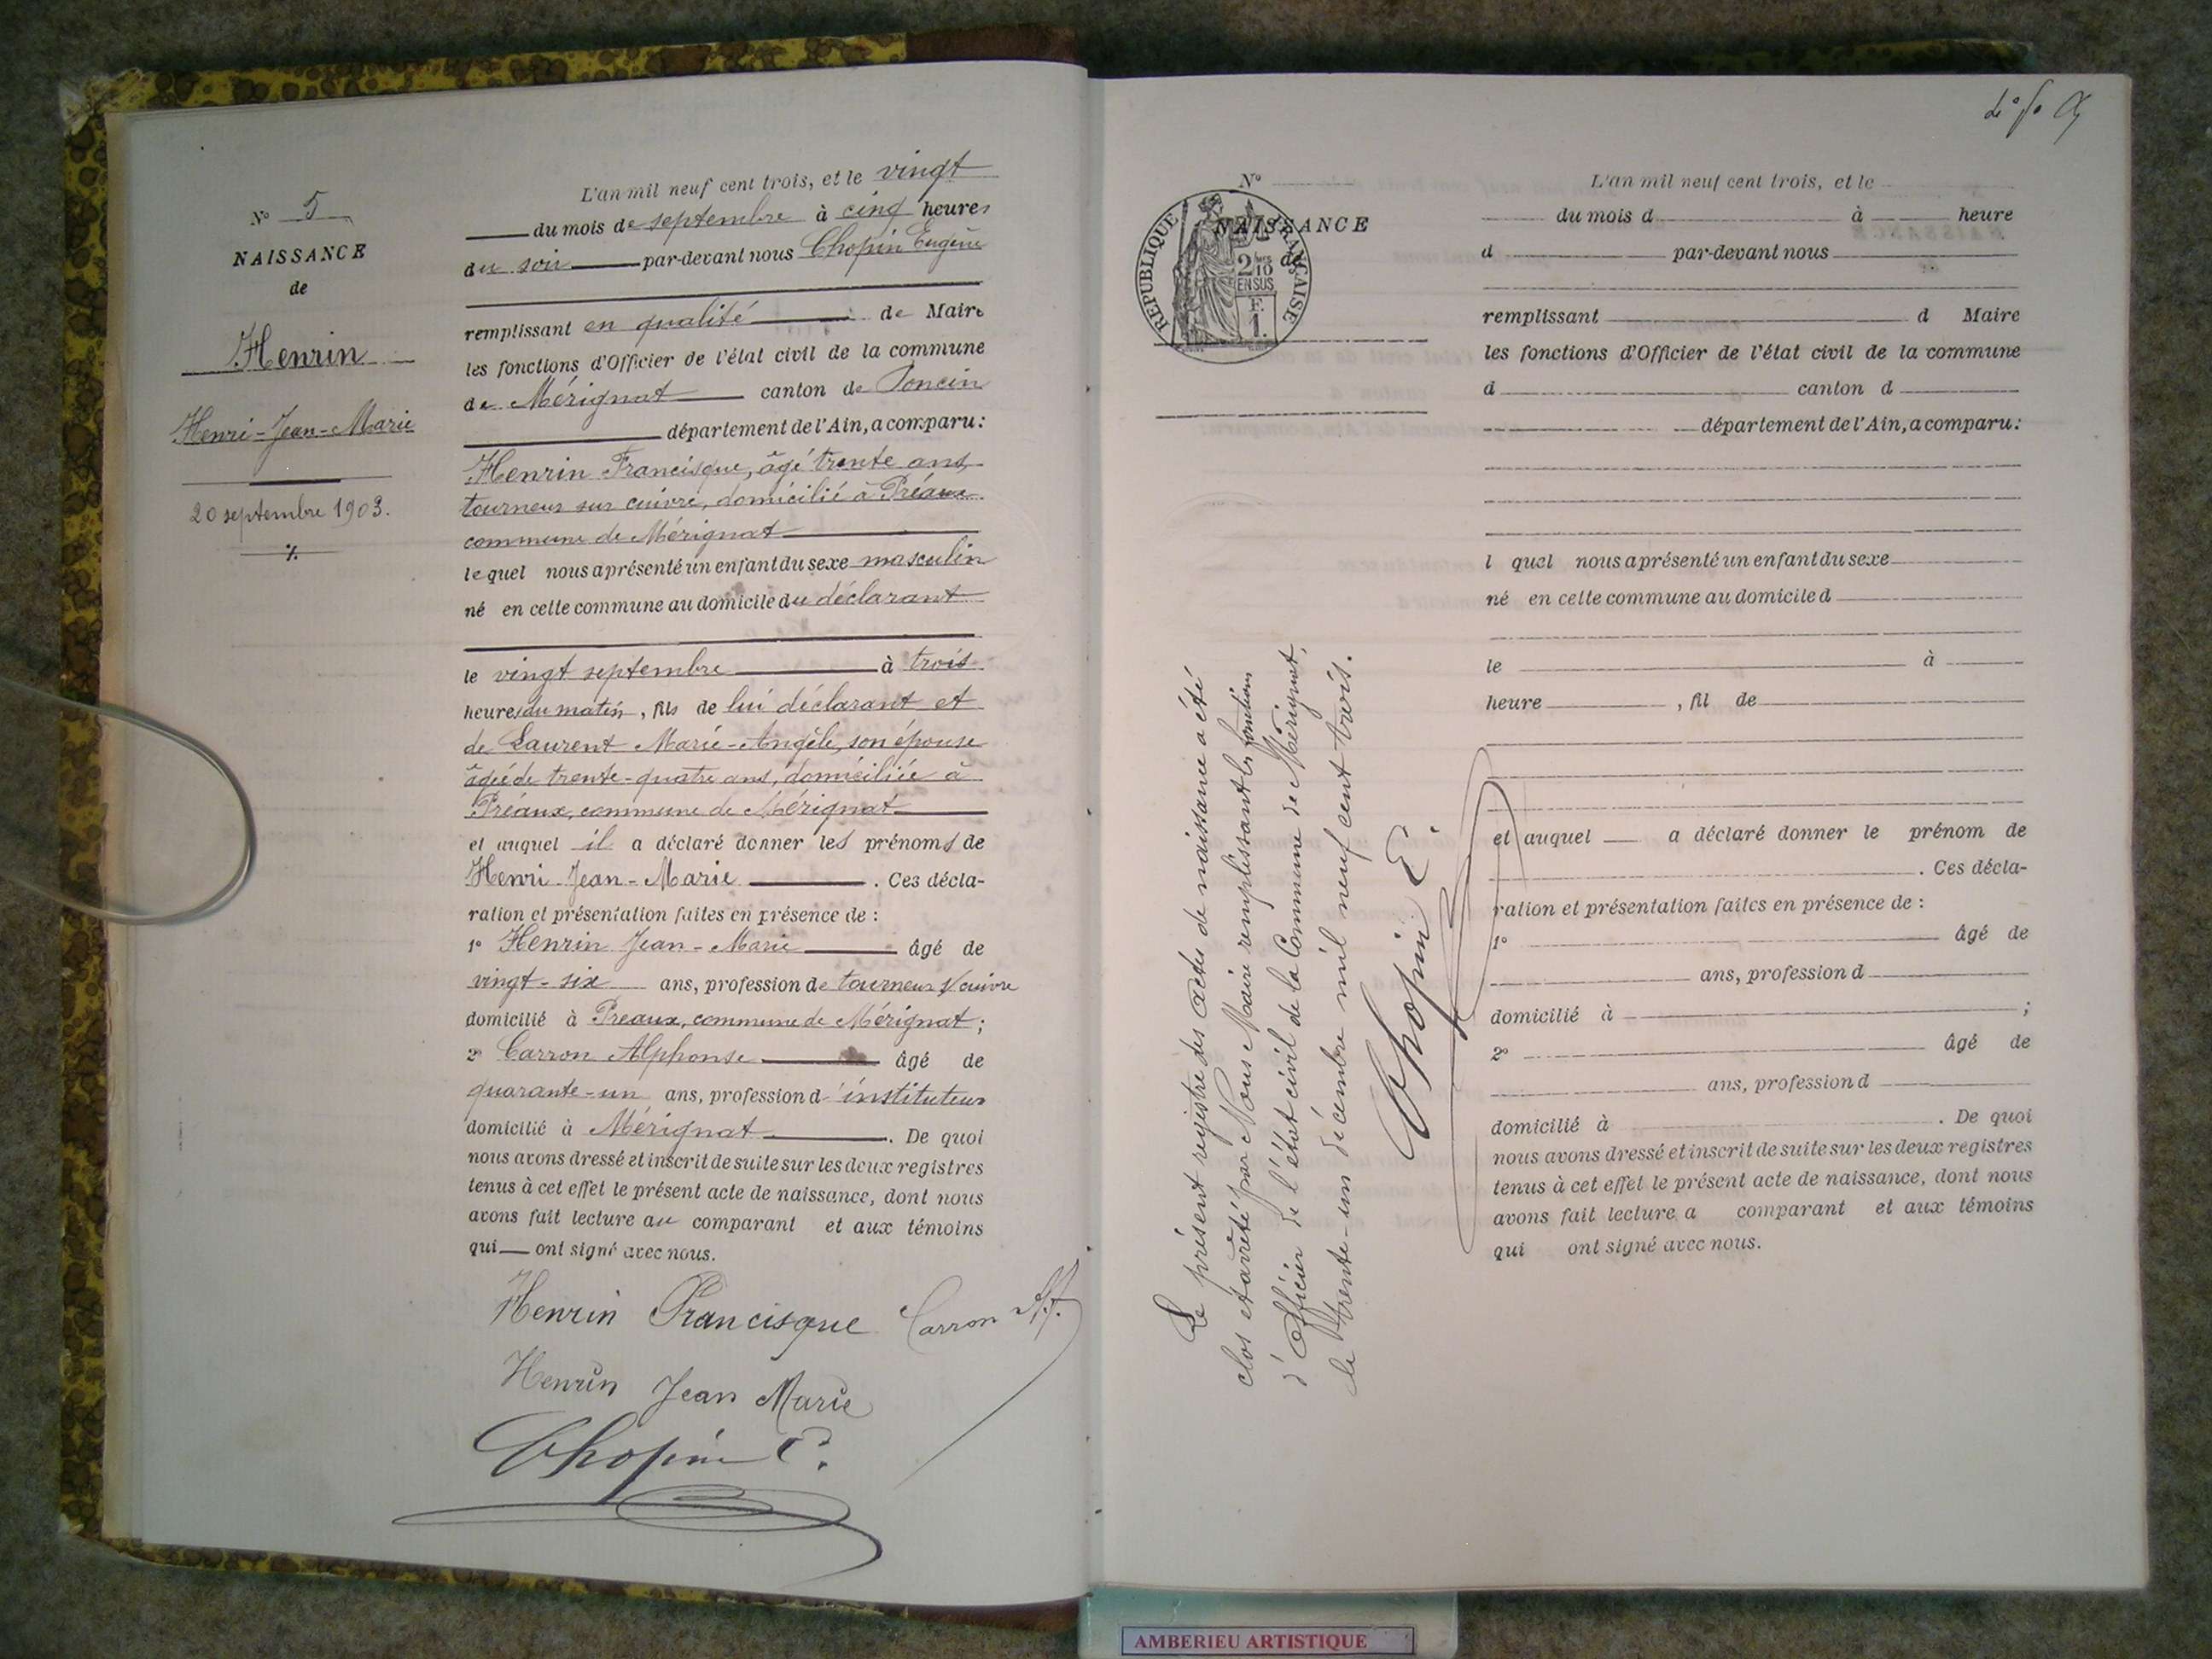 Nº 5
NAISSANCE
de
Henrin
Henri-Jean-Marie
20 septembre 1903.
L'an mil neuf cent trois, et le vingt
du mois de septembre à cinq heures
du soir par-devant nous Chopin Eugène
remplissant en qualité de Maire
les fonctions d'Officier de l'état civil de la commune
de Mérignat canton de Poncin
département de l'Ain, a comparu :
Henrin Francisque, âgé trente ans
tourneur sur cuivre, domicilié à Préaux
commune de Mérignat
lequel nous a présenté un enfant du sexe masculin
né en cette commune au domicile du déclarant
le vingt septembre à trois
heures du matin, fils de lui déclarant et
de Laurent Marie-Angèle, son épouse
âgée de trente-quatre ans, domiciliée à
Préaux, commune de Mérignat
et auquel il a déclaré donner les prénoms de
Henri-Jean-Marie. Ces décla-
ration et présentation faites en présence de :
1º Henrin Jean-Marie âgé de
vingt-six ans, profession de tourneur s/ cuivre
domicilié à Preaux, commune de Mérignat ;
2º Carron Alphonse âgé de
quarante-un ans, profession d'instituteur
domicilié à Mérignat. De quoi
nous avons dressé et inscrit de suite sur les deux registres
tenus à cet effet le présent acte de naissance, dont nous
avons fait lecture au comparant et aux témoins
qui ont signé avec nous.
Henrin Francisque Carron
Henrin Jean Marie
Chopin E.
Nº
NAISSANCE
de
REPUBLIQUE FRANÇAISE
2/10
EN SUS
F.
1.
Le présent registre des actes de naissance a été
clos et arrêté par Nous Maire remplissant les fonctions
d'Officier de l'état civil de la Commune de Mérignat,
le trente-un décembre mil neuf cent trois.
Chopin E.
L'an mil neuf cent trois, et le
du mois d à heure
d par-devant nous
remplissant d Maire
les fonctions d'Officier de l'état civil de la commune
d canton d
département de l'Ain, a comparu :
l quel nous a présenté un enfant du sexe
né en cette commune au domicile d
le à
heure , fil de
et auquel a déclaré donner le prénom de
. Ces décla-
ration et présentation faites en présence de :
1º âgé de
ans, profession d
domicilié à ;
2º âgé de
ans, profession d
domicilié à . De quoi
nous avons dressé et inscrit de suite sur les deux registres
tenus à cet effet le présent acte de naissance, dont nous
avons fait lecture a comparant et aux témoins
qui ont signé avec nous.
AMBERIEU ARTISTIQUE